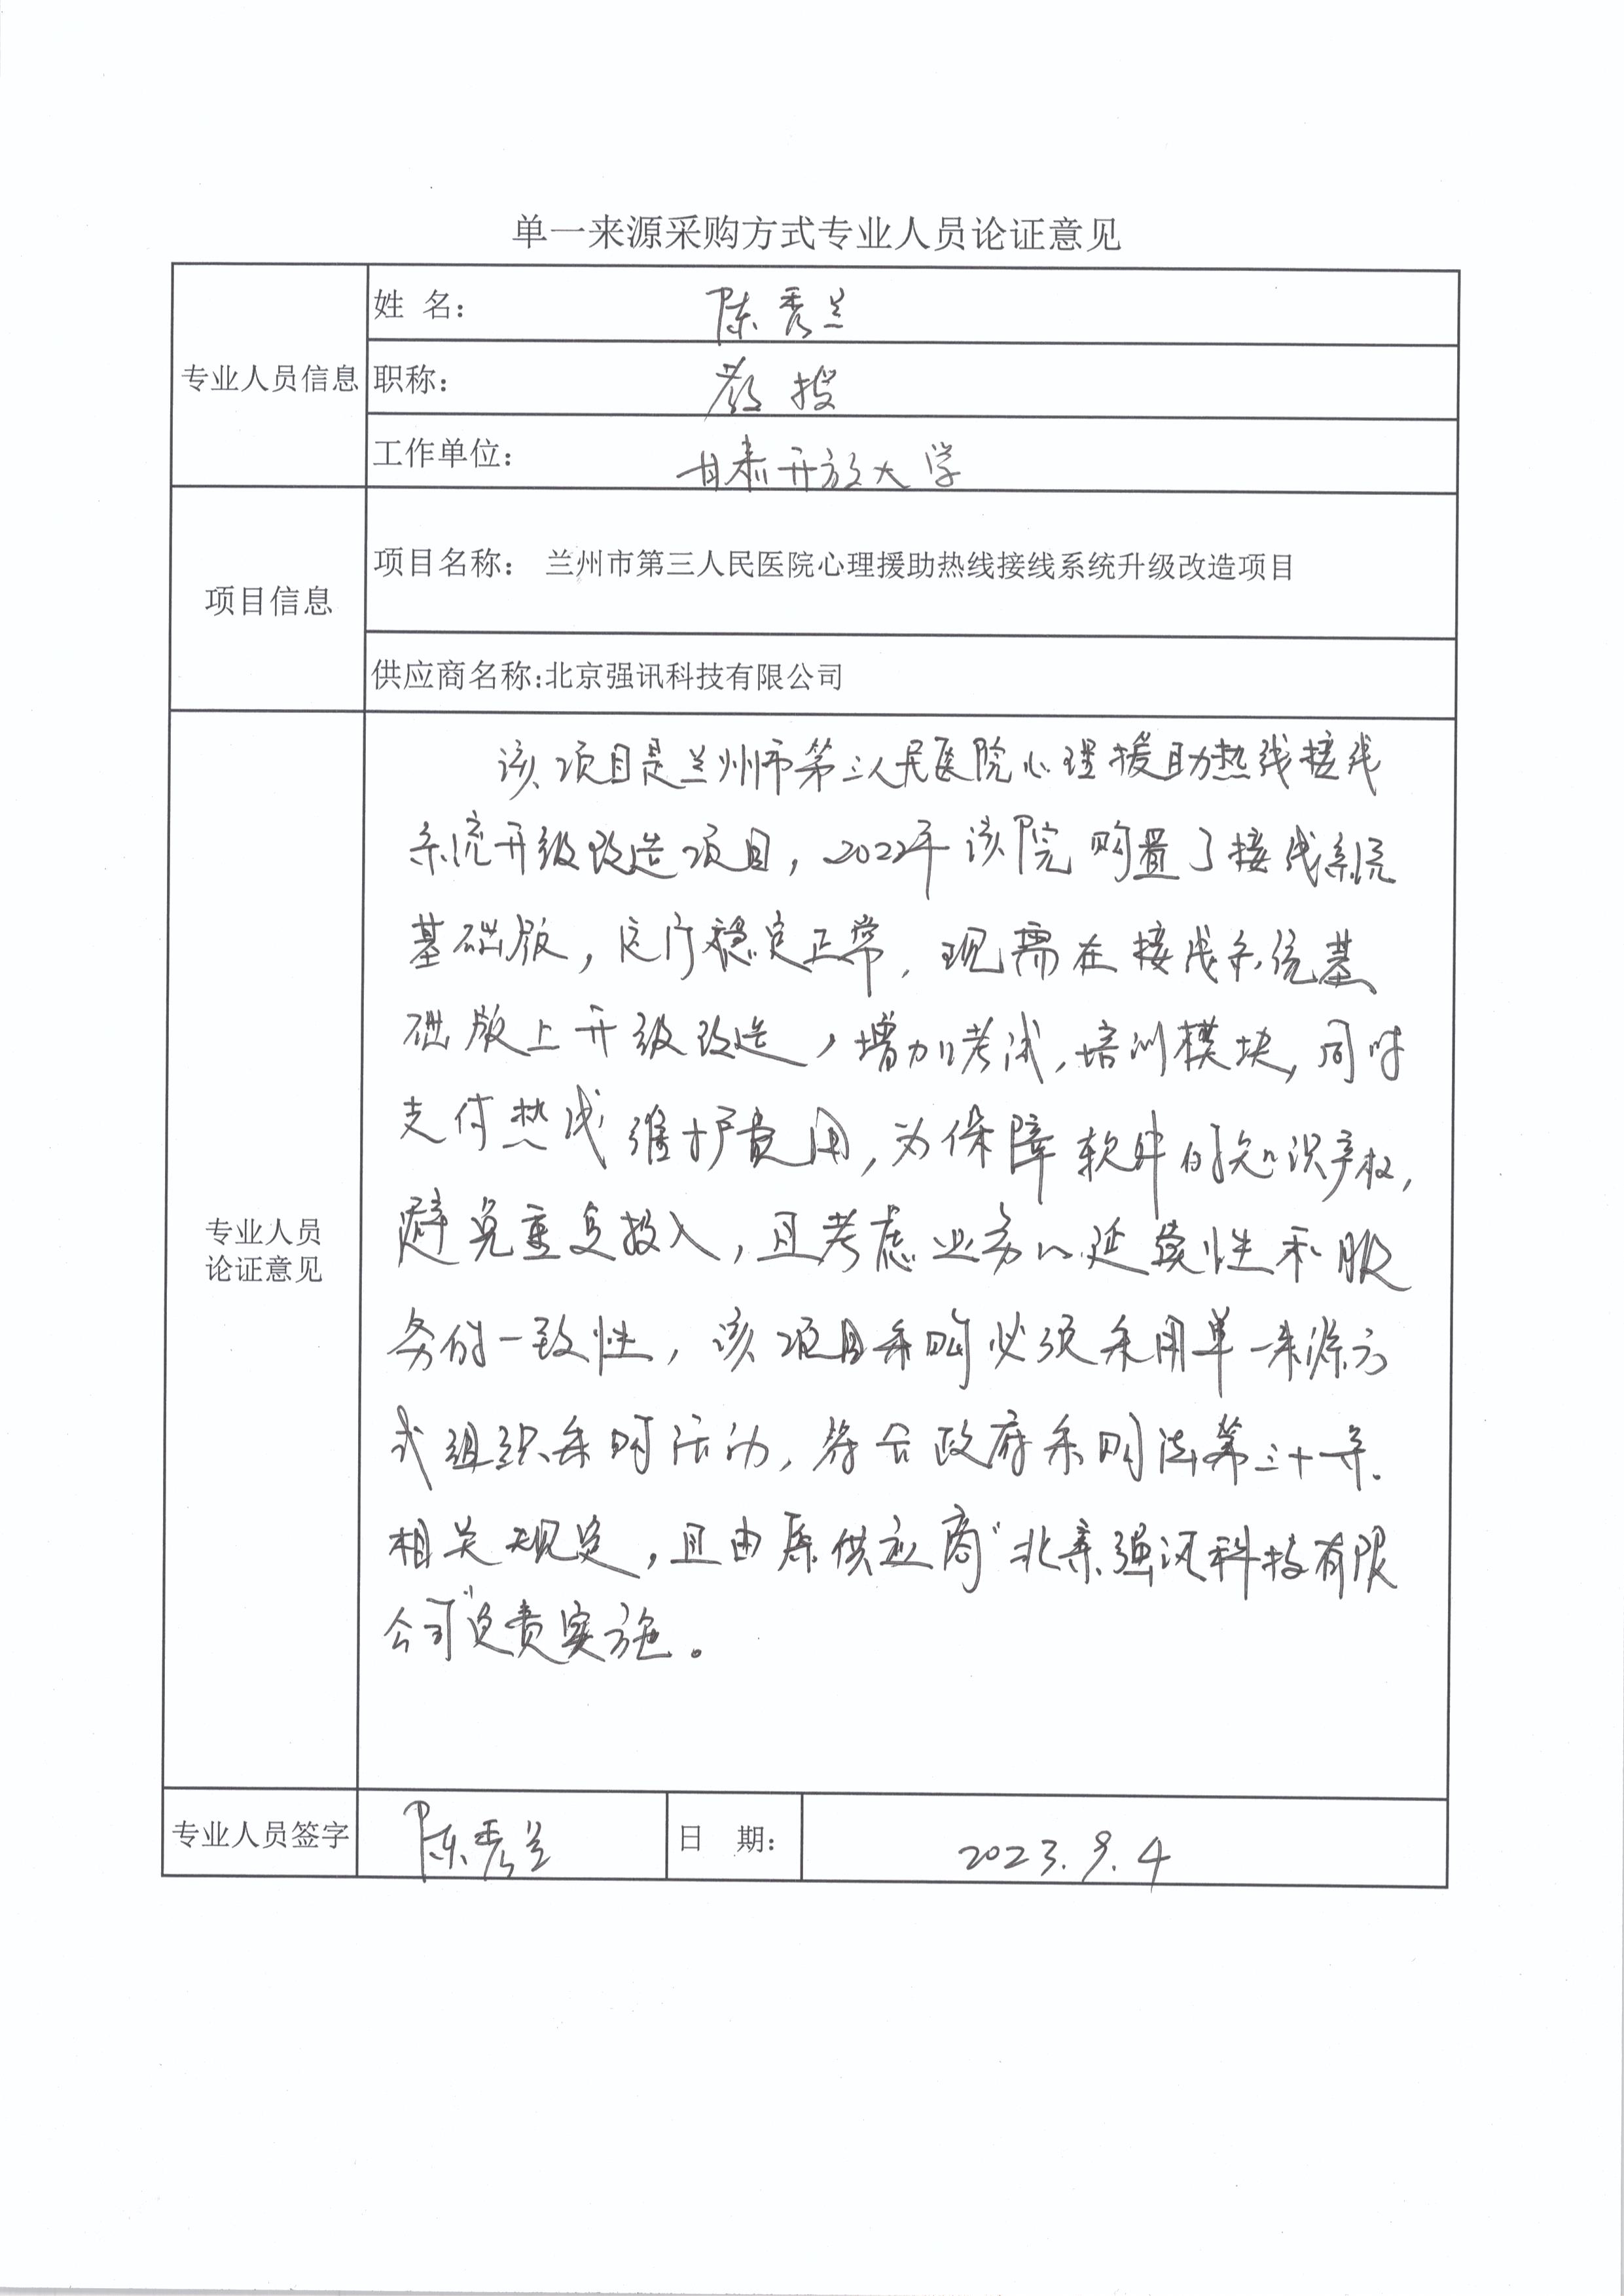 单一来源采购方式专业人员论证意见
专业人员信息
姓 名： 陈秀兰
职称： 教授
工作单位： 甘肃开放大学
项目信息
项目名称： 兰州市第三人民医院心理援助热线接线系统升级改造项目
供应商名称:北京强讯科技有限公司
专业人员
论证意见
该项目是兰州市第三人民医院心理援助热线接线
系统升级改造项目，2022年该院购置了接线系统
基础版，运行稳定正常，现需在接线系统基
础版上升级改造，增加考试，培训模块，同时
支付热线维护费用，为保障软件的知识产权，
避免重复投入，且考虑业务的延续性和服
务的一致性，该项目采购必须采用单一来源方
式组织采购活动，符合政府采购法第三十一条
相关规定，且由原供应商“北京强讯科技有限
公司”负责实施。
专业人员签字 陈秀兰 日 期： 2023.9.4